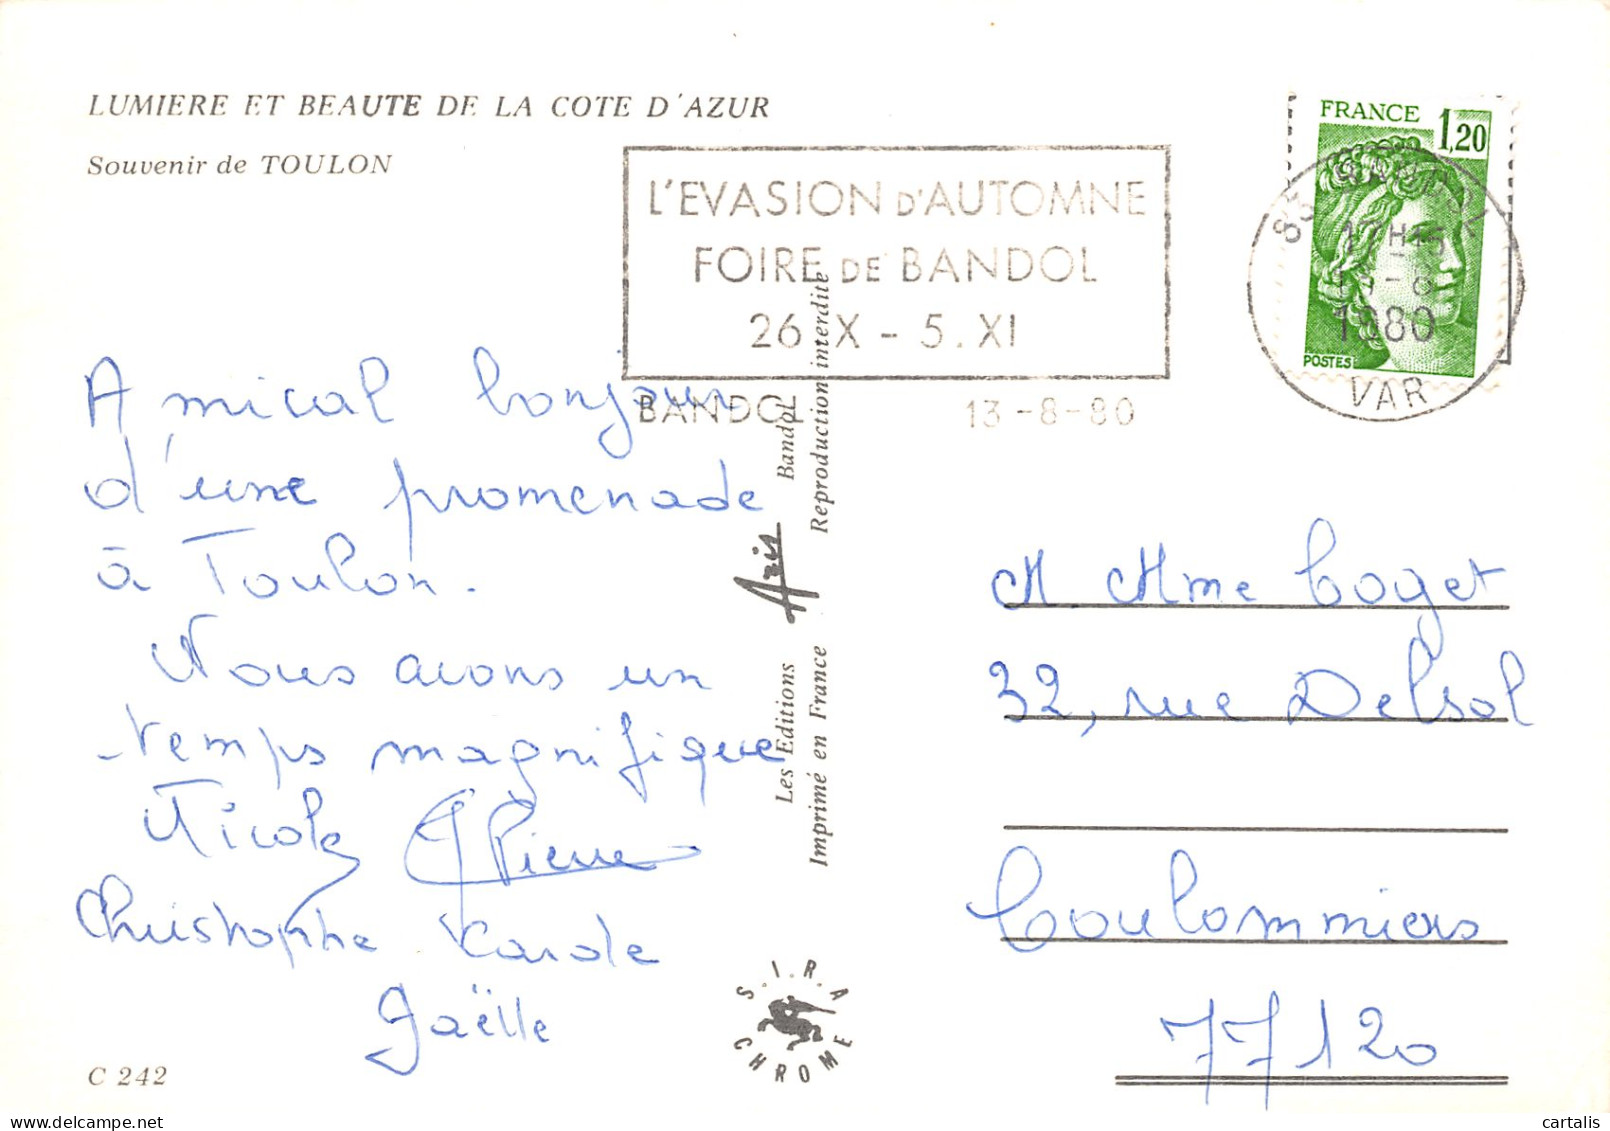 LUMIERE ET BEAUTE DE LA COTE D'AZUR
Souvenir de TOULON
L'EVASION D'AUTOMNE
FOIRE DE BANDOL
26.X - 5.XI
BANDOL
13-8-80
FRANCE 1,20
POSTES
83 BANDOL
17H15
13-8
1980
VAR
Amical bonjour
d'une promenade
à Toulon.
Nous avons un
temps magnifique
Nicole Pierre
Christophe Carole
Gaëlle
C 242
Les Editions Aris Bandol
Imprimé en France Reproduction interdite
S.I.R.A
CHROME
M Mme Coget
32, rue Delsol
Coulommiers
77120
cartalis